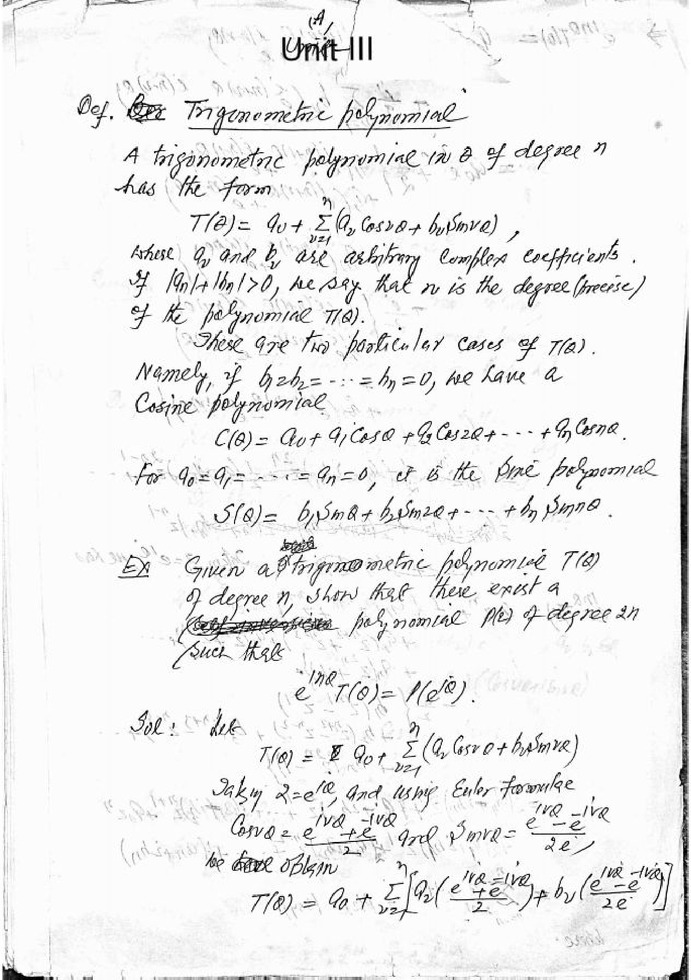 (A)
Unit III
Def. Trigonometric polynomial
A trigonometric polynomial in θ of degree n
has the form
T(θ) = a₀ + Σ_{ν=1}^{n} (a_ν Cos νθ + b_ν Sin νθ),
where a_ν and b_ν are arbitrary complex coefficients.
If |a_n| + |b_n| > 0, we say that n is the degree (precise)
of the polynomial T(θ).
There are two particular cases of T(θ).
Namely, if b₁=b₂= ---- = b_n = 0, we have a
Cosine polynomial
C(θ) = a₀ + a₁ Cosθ + a₂ Cos2θ + --- + a_n Cosnθ.
For a₀ = a₁ = ---- = a_n = 0, it is the Sine polynomial
S(θ) = b₁ Sinθ + b₂ Sin2θ + --- + b_n Sin nθ.
Ex Given a trigonometric polynomial T(θ)
of degree n, show that there exist a
polynomial P(z) of degree 2n
such that
e^{inθ} T(θ) = P(e^{iθ}).
Sol: Let
T(θ) = a₀ + Σ_{ν=1}^{n} (a_ν Cosνθ + b_ν Sinνθ)
Taking z = e^{iθ}, and using Euler formulae
Cosνθ = (e^{iνθ} + e^{-iνθ})/2 and Sinνθ = (e^{iνθ} - e^{-iνθ})/2i,
we obtain
T(θ) = a₀ + Σ_{ν=1}^{n} [a_ν ((e^{iνθ} + e^{-iνθ})/2) + b_ν ((e^{iνθ} - e^{-iνθ})/2i)]